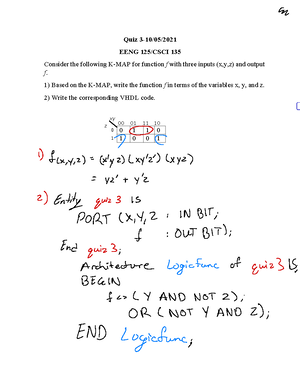 Quiz 3-10/05/2021
EENG 125/CSCI 135
Consider the following K-MAP for function f with three inputs (x,y,z) and output
f.
1) Based on the K-MAP, write the function f in terms of the variables x, y, and z.
2) Write the corresponding VHDL code.
xy
z 00 01 11 10
0 0 1 1 0
1 1 0 0 1
1) f(x,y,z) = (x'yz) (xy'z') (xyz)
= yz' + y'z
2) Entity quiz3 is
PORT (x,y,z : IN BIT;
f : OUT BIT);
End quiz3;
Architecture LogicFunc of quiz3 IS
BEGIN
f <= (Y AND NOT Z);
OR (NOT Y AND Z);
END Logicfunc;